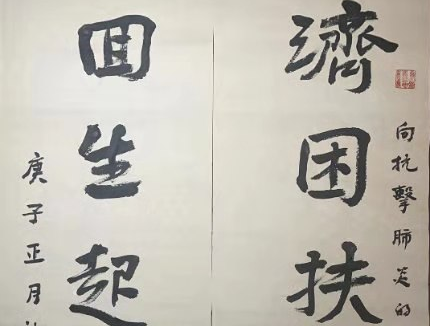 向抗擊肺炎的
濟困扶
回生起
庚子正月